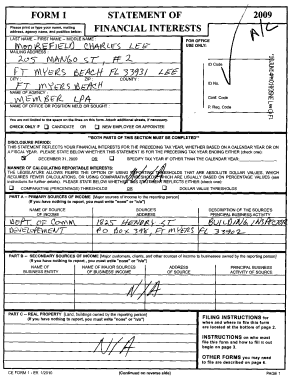 FORM 1 STATEMENT OF 2009
FINANCIAL INTERESTS
Please print or type your name, mailing address, agency name, and position below:
FOR OFFICE USE ONLY:
LAST NAME - FIRST NAME - MIDDLE NAME:
MOOREFIELD CHARLES LEE
MAILING ADDRESS:
205 MANGO ST, #2
FT MYERS BEACH FL 33931 LEE
CITY: ZIP: COUNTY:
FT MYERS BEACH
NAME OF AGENCY:
MEMBER LPA
NAME OF OFFICE OR POSITION HELD OR SOUGHT:
ID Code
ID No.
Conf. Code
P. Req. Code
You are not limited to the space on the lines on this form. Attach additional sheets, if necessary.
CHECK ONLY IF CANDIDATE OR NEW EMPLOYEE OR APPOINTEE
**BOTH PARTS OF THIS SECTION MUST BE COMPLETED**
DISCLOSURE PERIOD:
THIS STATEMENT REFLECTS YOUR FINANCIAL INTERESTS FOR THE PRECEDING TAX YEAR, WHETHER BASED ON A CALENDAR YEAR OR ON A FISCAL YEAR. PLEASE STATE BELOW WHETHER THIS STATEMENT IS FOR THE PRECEDING TAX YEAR ENDING EITHER (check one):
DECEMBER 31, 2009 OR SPECIFY TAX YEAR IF OTHER THAN THE CALENDAR YEAR:
MANNER OF CALCULATING REPORTABLE INTERESTS:
THE LEGISLATURE ALLOWS FILERS THE OPTION OF USING REPORTING THRESHOLDS THAT ARE ABSOLUTE DOLLAR VALUES, WHICH REQUIRES FEWER CALCULATIONS, OR USING COMPARATIVE THRESHOLDS, WHICH ARE USUALLY BASED ON PERCENTAGE VALUES (see instructions for further details). PLEASE STATE BELOW WHETHER THIS STATEMENT REFLECTS EITHER (check one):
COMPARATIVE (PERCENTAGE) THRESHOLDS OR DOLLAR VALUE THRESHOLDS
PART A -- PRIMARY SOURCES OF INCOME [Major sources of income to the reporting person]
(If you have nothing to report, you must write "none" or "n/a")
NAME OF SOURCE OF INCOME
SOURCE'S ADDRESS
DESCRIPTION OF THE SOURCE'S PRINCIPAL BUSINESS ACTIVITY
DEPT OF COMM 1825 HENDRY ST BUILDING INSPECTOR
DEVELOPEMENT PO BOX 398, FT MYERS FL 33902
PART B -- SECONDARY SOURCES OF INCOME [Major customers, clients, and other sources of income to businesses owned by the reporting person]
(If you have nothing to report, you must write "none" or "n/a")
NAME OF BUSINESS ENTITY
NAME OF MAJOR SOURCES OF BUSINESS' INCOME
ADDRESS OF SOURCE
PRINCIPAL BUSINESS ACTIVITY OF SOURCE
N/A
PART C -- REAL PROPERTY [Land, buildings owned by the reporting person]
(If you have nothing to report, you must write "none" or "n/a")
N/A
FILING INSTRUCTIONS for when and where to file this form are located at the bottom of page 2.
INSTRUCTIONS on who must file this form and how to fill it out begin on page 3.
OTHER FORMS you may need to file are described on page 6.
CE FORM 1 - Eff. 1/2010 (Continued on reverse side) PAGE 1